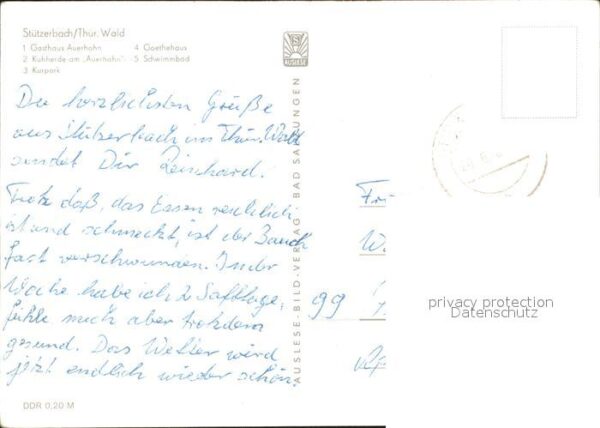 Stützerbach/Thür. Wald
1 Gasthaus Auerhahn 4 Goethehaus
2 Kuhherde am „Auerhahn" 5 Schwimmbad
3 Kurpark
Die herzlichsten Grüße
aus Stützerbach im Thür. Wald
sendet Dir Reinhard.
Trotz daß, das Essen reichlich
ist und schmeckt, ist der Bauch
fast verschwunden. In der
Woche habe ich 2 Safttage,
fühle mich aber trotzdem
gesund. Das Wetter wird
jetzt endlich wieder schön.
DDR 0,20 M
AUSLESE
AUSLESE-BILD-VERLAG · BAD SALZUNGEN
99
privacy protection
Datenschutz